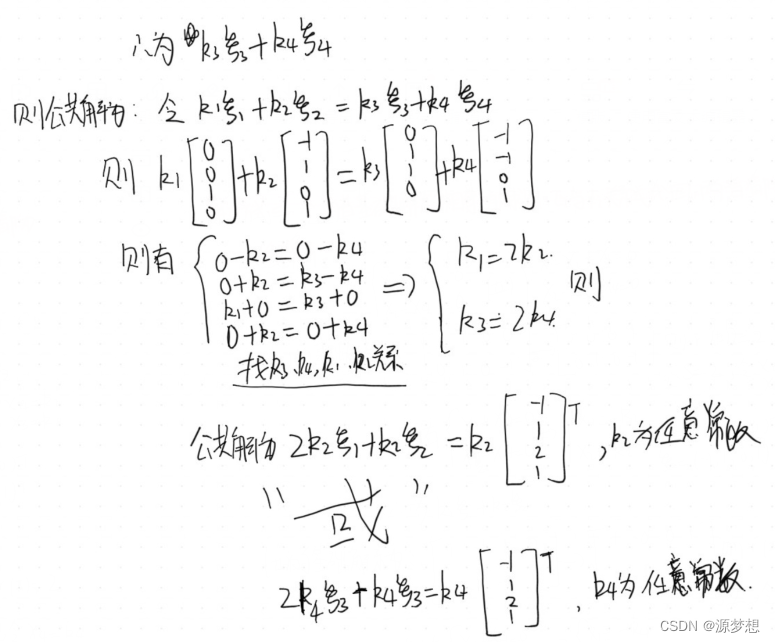 为 k3ξ3+k4ξ4
则公共解为: 令 k1ξ1+k2ξ2=k3ξ3+k4ξ4
则 k1[0 0 1 0]+k2[-1 1 0 1]=k3[0 1 1 0]+k4[-1 -1 0 1]
则有 { 0-k2=0-k4
0+k2=k3-k4
k1+0=k3+0
0+k2=0+k4
=> { k1=2k2.
k3=2k4. 则
找k3,k4,k1,k2关系
公共解为 2k2ξ1+k2ξ2=k2[-1 1 2 1]T, k2为任意常数
"或"
2k4ξ3+k4ξ3=k4[-1 1 2 1]T, k4为任意常数.
CSDN @源梦想